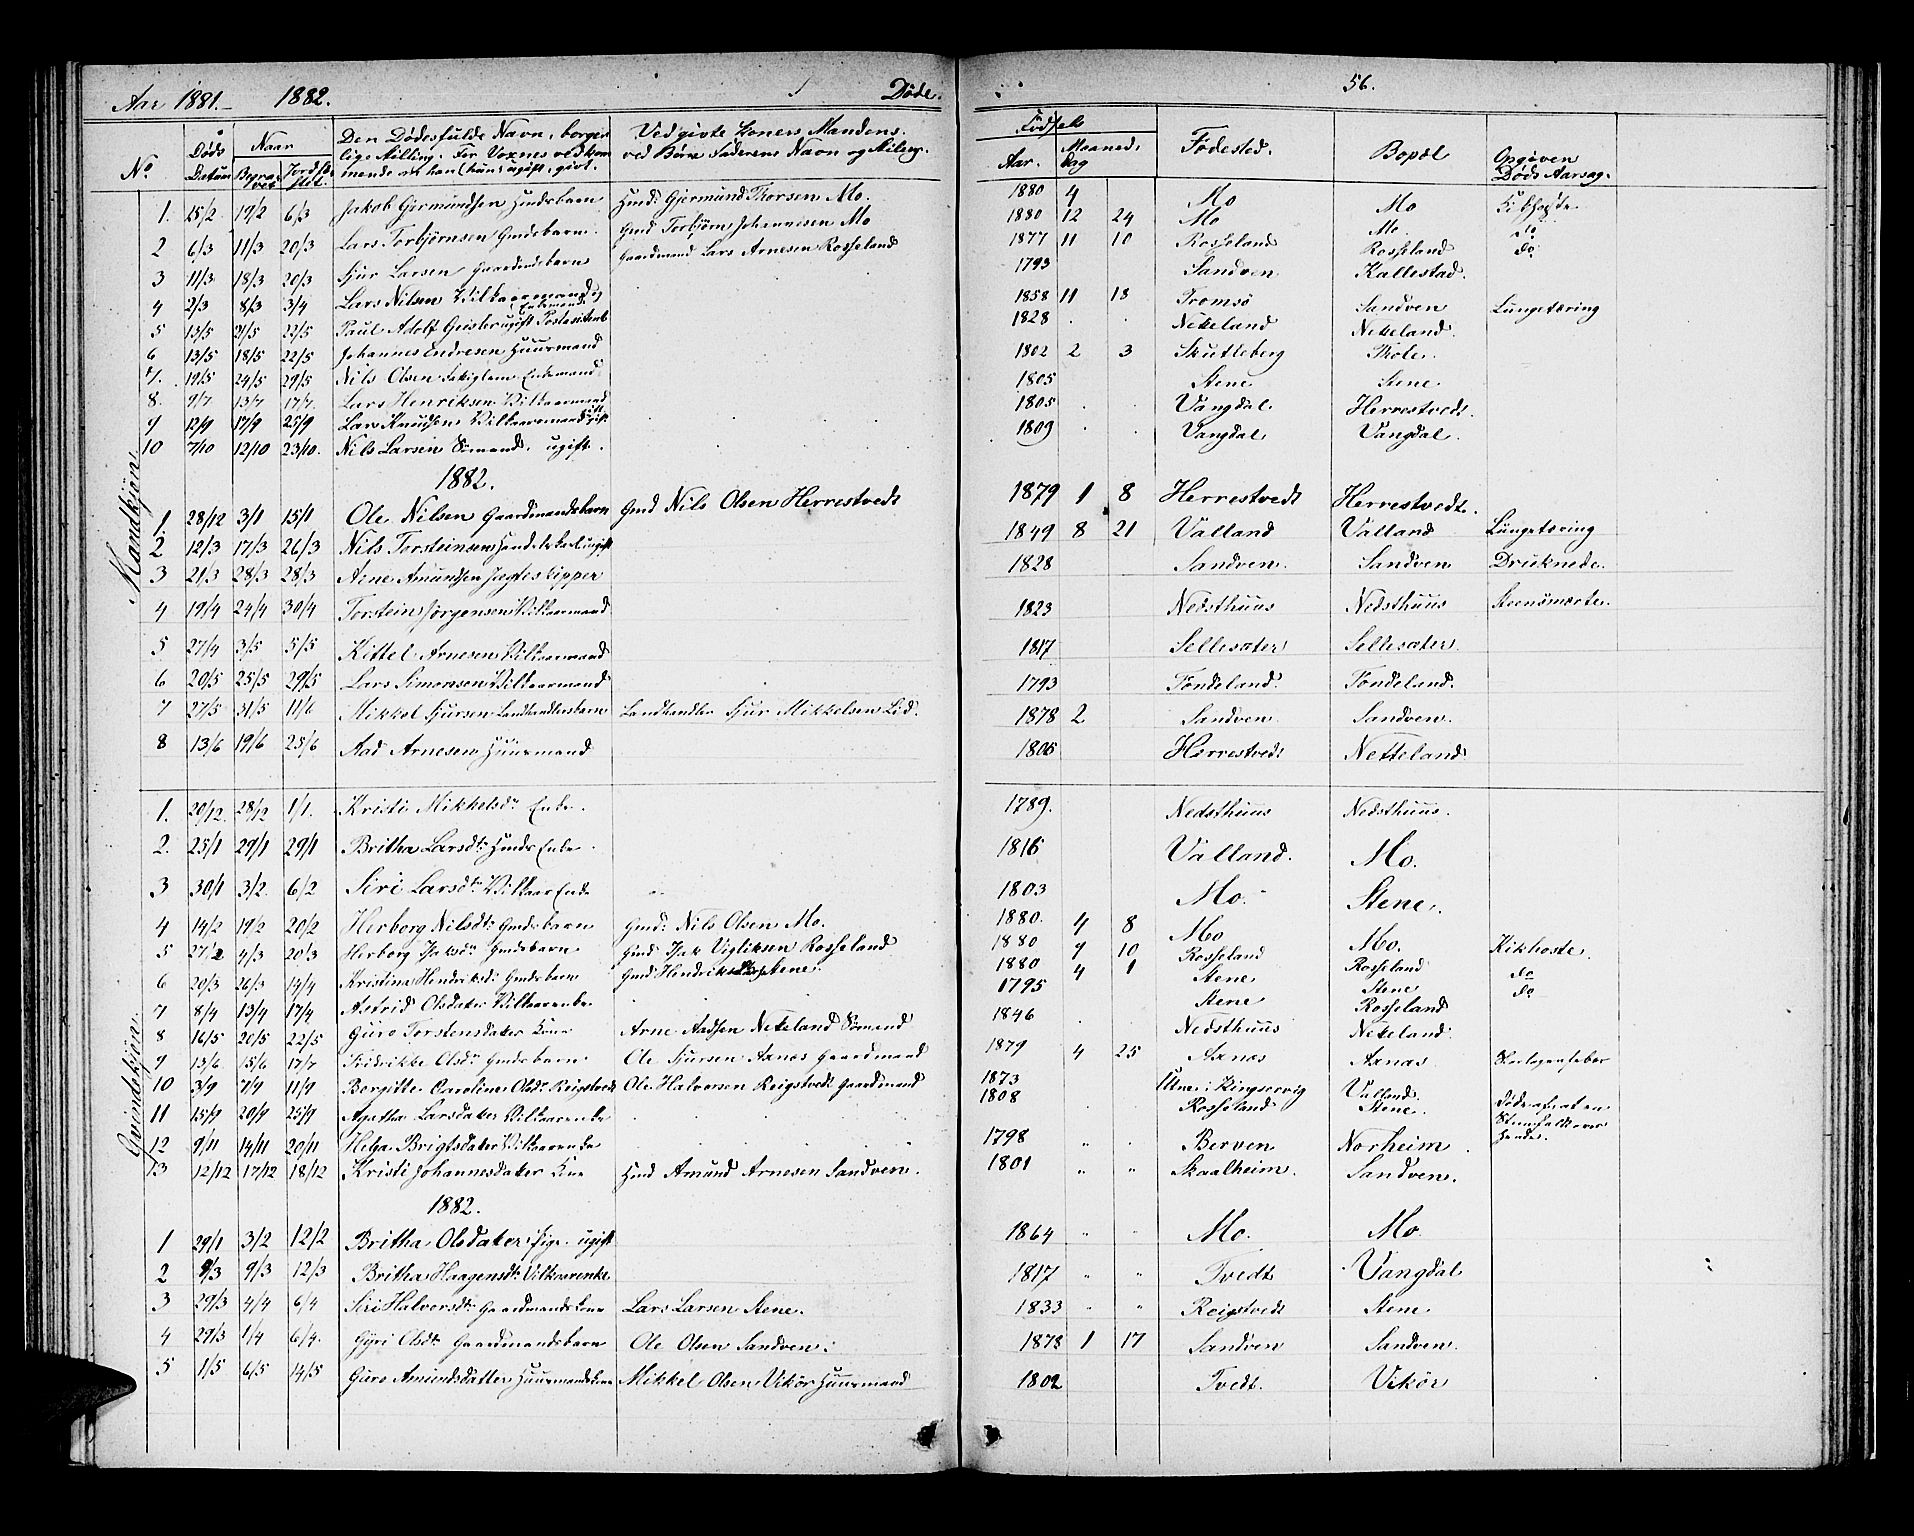 Aar 1881. 1882. Døde. 56.
No Døds Datum Naar Begravet Jordfæstet. Den Dødes fulde Navn, borgerlige Stilling. For Voxnes vedkommende om han (hun) ugift, givt. Ved givte Koners Mandens. ved Børn Faderens Navn og Stilling. Fødsels Aar. Maaned. Dag Fødested. Bopæl Opgiven Døds Aarsag.
Mandkjøn
1. 15/2 19/2 6/3 Jakob Gjermundsen Hmdsbarn Hmd: Gjermund Thorsen Mo. 1880 4 Mo Mo Kikhoste
2 6/3 11/3 20/3 Lars Torbjørnsen Gmdsbarn. Gmd Torbjørn Johannesen Mo 1880 12 24 Mo Mo. do
3 11/3 18/3 20/3 Sjur Larsen Gaardmdsbarn Gaardmand Lars Arnesen Rosseland 1877 11 10 Rosseland Rosseland do
4 2/3 8/3 3/4 Lars Nilsen Vilkaarmand og Enkemand 1793 Sandven Kallestad.
5 13/5 21/5 22/5 Paul Adolf Geisler ugift 1858 11 13 Tromsø Sandven Lungetæring
6 13/5 18/5 22/5 Johannes Endresen Huusmand 1828 . . Neteland Neteland.
7. 19/5 24/5 29/5 Nils Olsen Enkemand 1802 2 3 Skutleberg Thole.
8. 9/7 13/7 17/7 Lars Henriksen Vilkaarmand 1805 Stene Stene.
9 12/9 17/9 25/9 Lars Knudsen Vilkaarmand gift 1805 . . Vangdal Herrestvedt.
10 7/10 12/10 23/10. Nils Larsen Sømand. ugift. 1809 . . Vangdal. Vangdal.
1882.
1. 28/12 3/1 15/1 Ole Nilsen Gaardmandsbarn Gmd Nils Olsen Herrestvedt 1879 1 8 Herrestvedt Herrestvedt.
2 12/3 17/3 26/3 Nils Torsteinsen ugift 1849 8 21 Valland Valland Lungetæring
3 21/3 28/3 28/3 Arne Amundsen Jagteskipper 1828 Sandven. Sandven Druknede.
4 19/4 24/4 30/4 Torstein Jørgensen Vilkaarmand 1823 Nedsthuus Nedsthuus Steensmerte.
5 27/4 3/5 5/5 Kittel Arnesen Vilkaarmand 1817 Sellesæter Sellesæter.
6 20/5 25/5 29/5 Lars Simonsen Vilkaarmand 1793 Tondeland. Tondeland.
7 27/5 31/5 11/6 Mikkel Sjursen Landhandlersbarn Landhandler Sjur Mikkelsen Lid. 1878 2 Sandven. Sandven.
8 13/6 19/6 25/6 Aad Arnesen Huusmand 1806 Herrestvedt Netteland
Qvindekjøn
1. 20/12. 28/12 1/1. Kristi Mikkelsdr Enke. 1789. Nedsthuus Nedsthuus.
2. 25/1 29/1 29/1 Britha Larsdtr Hmds Enke. 1816 Valland. Mo.
3 30/1 3/2. 6/2 Siri Larsdtr Vilkaar Enke 1803 Mo. Stene.
4 14/2 19/2 20/2 Herborg Nilsdtr Gmdsbarn Gmd: Nils Olsen Mo. 1880. 4 8 Mo Mo.
5 27/2 4/3 20/3 Herborg Isaksdtr Gmdsbarn Gmd: Isak Vigliksen Rosseland 1880 9 10 Rosseland Rosseland Kikhoste.
6 20/3 26/3 14/4 Kristina Hendriksdr Gmdsbarn Gmd: Hendrik Stene. 1880 4 1 Stene Stene do
7 8/4 13/4 17/4 Astrid Olsdater Vilkaarenke . 1795 Stene Rosseland do
8 16/5 20/5 22/5 Guro Torstensdater Kone Arne Aadsen Neteland Sømand 1846 Nedsthuus Neteland
9 13/6 15/6 17/7 Fredrikke Olsdr Gmdsbarn Ole Sjursen Axnæs Gaardmand 1879 4 25 Axnæs Axnæs Skarlagensfeber
10 3/9 7/9 11/9 Bergitte Caroline Olsdr Reigstvedt Ole Halvorsen Reigstvedt Gaardmand 1873 Utne i Kingservig Valland.
11 15/9 20/9 25/9 Agatha Larsdater Vilkaarenke 1808 Rosseland Stene. Døde af at en Steen faldt over hende.
12 9/11 14/11 20/11 Helga Brigtsdater Vilkaarenke 1798 Berven Norheim.
13 12/12 17/12 18/12 Kristi Johannesdater Kone Hmd Amund Arnesen Sandven. 1801 Skaalheim. Sandven.
1882.
1 29/1 3/2 12/2 Britha Olsdater pige. ugift 1864 Mo. Mo.
2 8/3 9/3 12/3 Britha Haagensdr Vilkaarenke 1817 Tvedt Vangdal
3 29/3 4/4 6/4 Siri Halvorsdr Gaardmandskone Lars Larsen Stene. 1833 Reigstvedt Stene
4 29/3 1/4 6/4. Gyri Olsdr Gaardmandsbarn Ole Olsen Sandven. 1878 1 17 Sandven Sandven.
5 1/5 6/5 14/5 Guro Amundsdatter Huusmandskone Mikkel Olsen Vikør Huusmand 1802 Tvedt. Vikør